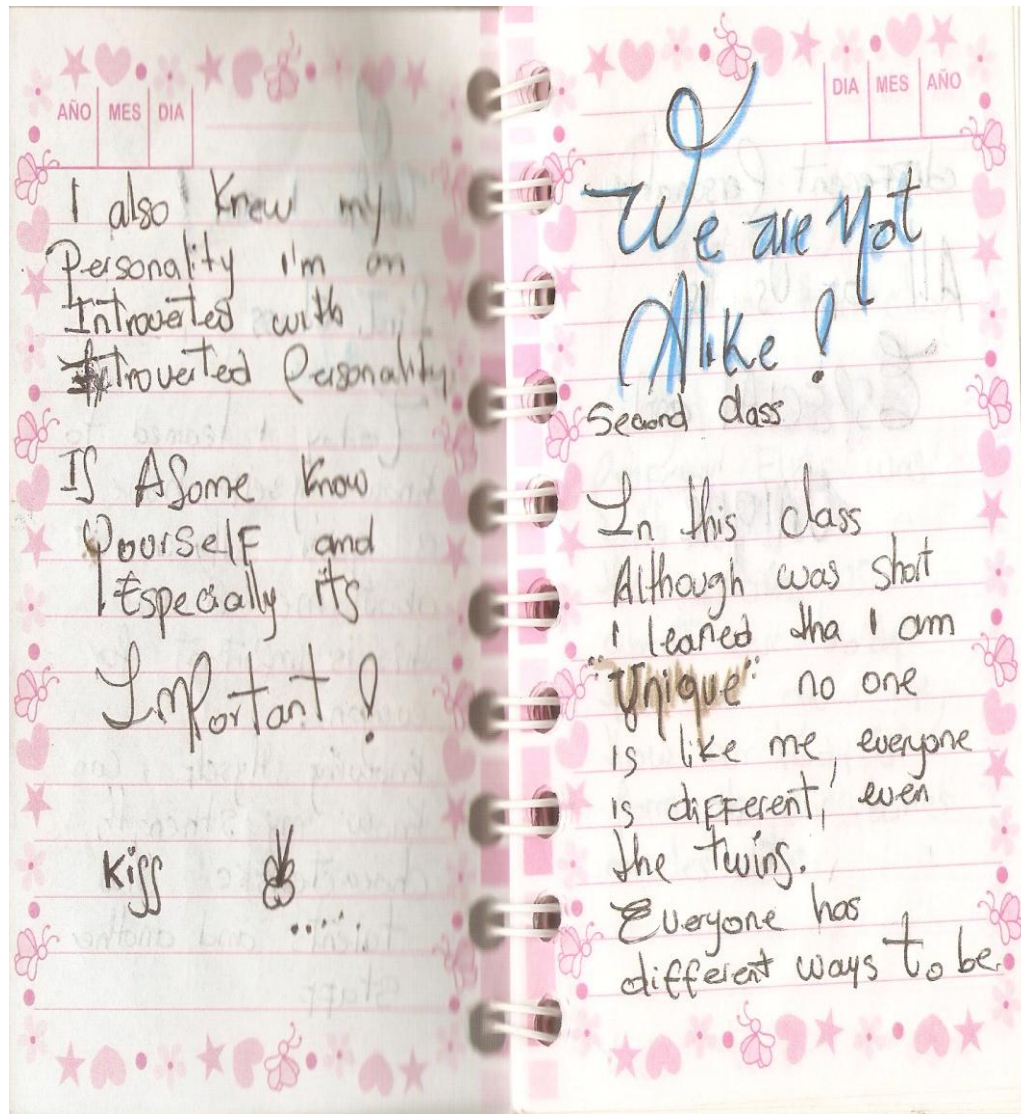 AÑO MES DIA
I also Knew my
Personality i'm an
Introverted with
Personality
IS ASome Know
YourSelF and
Especially it's
Important !
Kiss
DIA MES AÑO
We are Not
Alike !
Second class
In this class
Although was short
I leaned tha I am
"Unique" no one
is like me, everyone
is different, even
the twins.
Everyone has
different ways to be